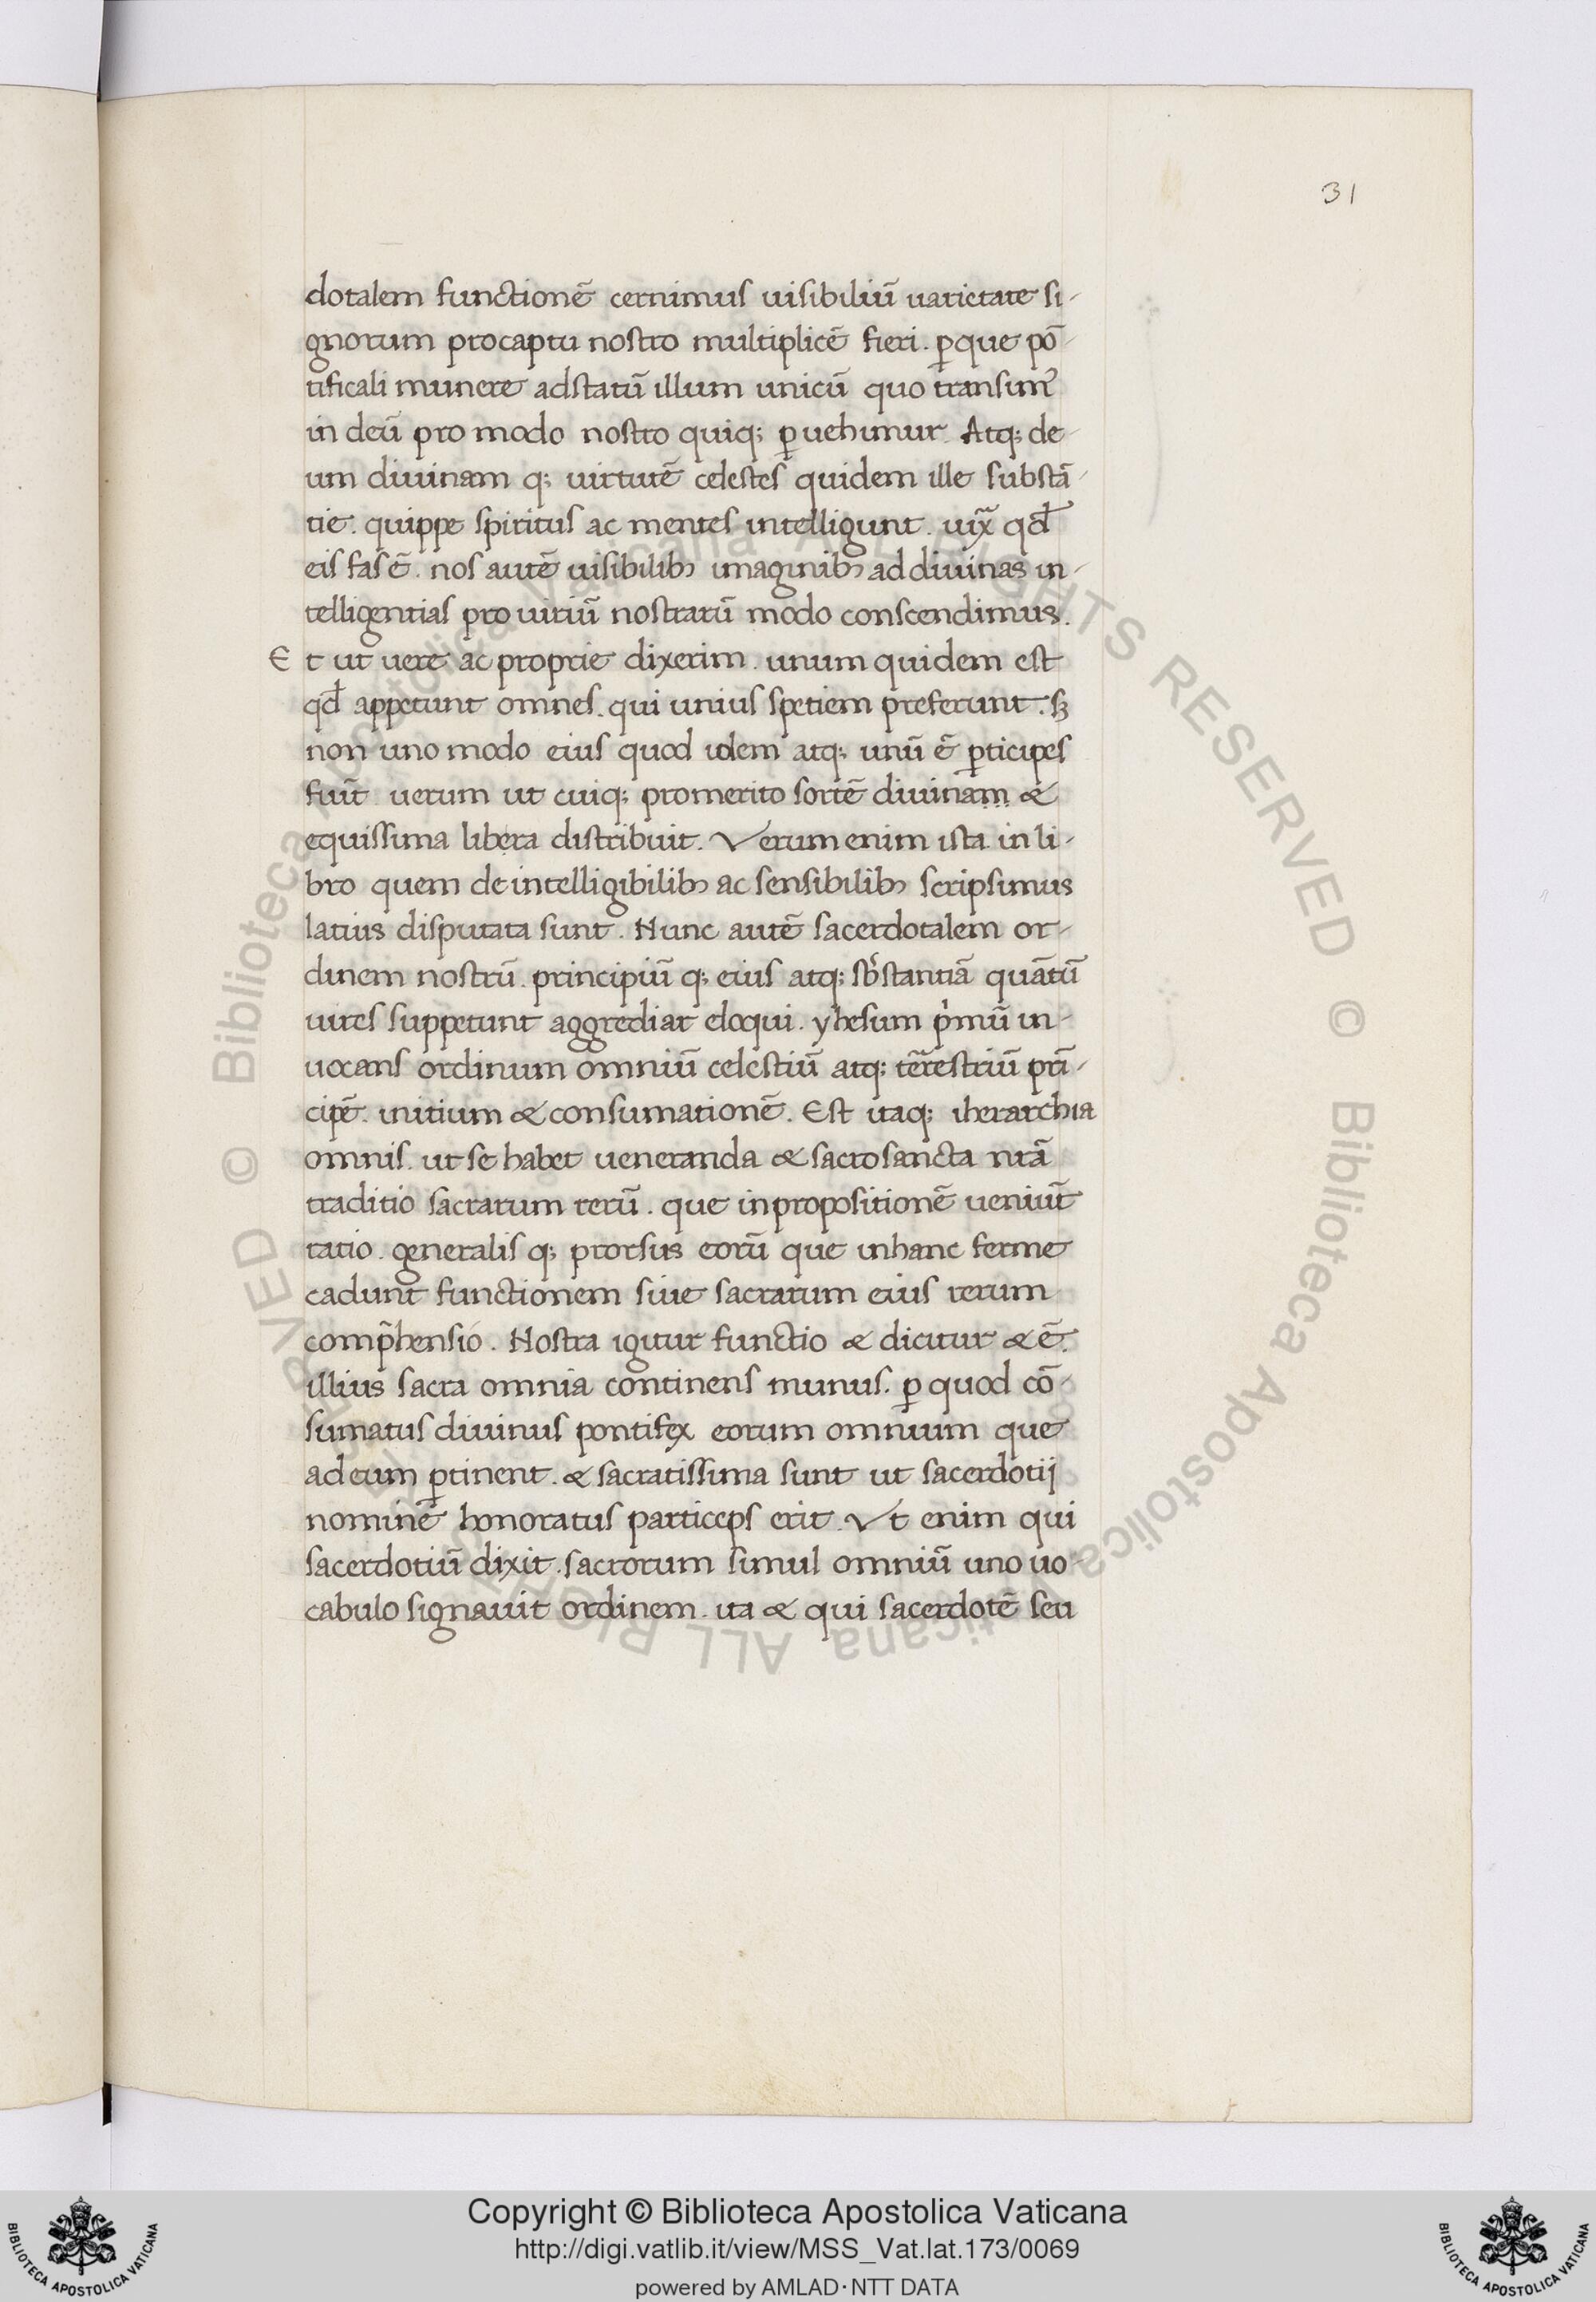 31
dotalem functionē cernimus uisibiliū uarietate si-
gnorum procaptu nostro multiplicē fieri. ꝑque pō-
tificali munere adstatū illum unicū quo transim᷒
in deū pro modo nostro quiq; ꝑuehimur. Atq; de-
um diuinam q; uirtutē celestes quidem ille substā-
tie. quippe spiritus ac mentes intelligunt. uix̄ qđ
eis fas ē. nos autē uisibilibꝫ imaginibꝫ ad diuinas in-
telligentias pro uiriū nostrarū modo conscendimus.
Et ut uere ac proprie dixerim. unum quidem est
qđ appetunt omnes. qui unius spetiem preferunt. sꝫ
non uno modo eius quod idem atq; unū ē ꝑticipes
fiūt uerum ut cuiq; promerito sortē diuinam &
equissima libera distribuit. Verum enim ista in li-
bro quem de intelligibilibꝫ ac sensibilibꝫ scripsimus
latius disputata sunt. Nunc autē sacerdotalem or-
dinem nostrū. principiū q; eius atq; sb̄stantiā quātū
uires suppetunt aggrediar eloqui. yhesum pͥmū in-
uocans ordinum omniū celestiū atq; tērestriū prī-
cipē. initium & consumationē. Est itaq; iherarchia
omnis. ut se habet ueneranda & sacrosancta nrā
traditio sacrarum rerū. que inpropositionē ueniūt
ratio. generalis q; prorsus eorū que inhanc ferme
cadunt functionem siue sacrarum eius rerum
comp̄hensio. Nostra igitur functio & dicitur & ē.
illius sacra omnia continens munus. ꝑ quod cō-
sumatus diuinus pontifex eorum omnium que
ad eum ꝑtinent. & sacratissima sunt ut sacerdotij
nomine honoratus particeps erit. Vt enim qui
sacerdotiū dixit. sacrorum simul omniū uno uo-
cabulo signauit ordinem. ita & qui sacerdotē seu
© Biblioteca Apostolica Vaticana ALL RIGHTS RESERVED
Copyright © Biblioteca Apostolica Vaticana
http://digi.vatlib.it/view/MSS_Vat.lat.173/0069
powered by AMLAD·NTT DATA
BIBLIOTECA APOSTOLICA VATICANA
BIBLIOTECA APOSTOLICA VATICANA